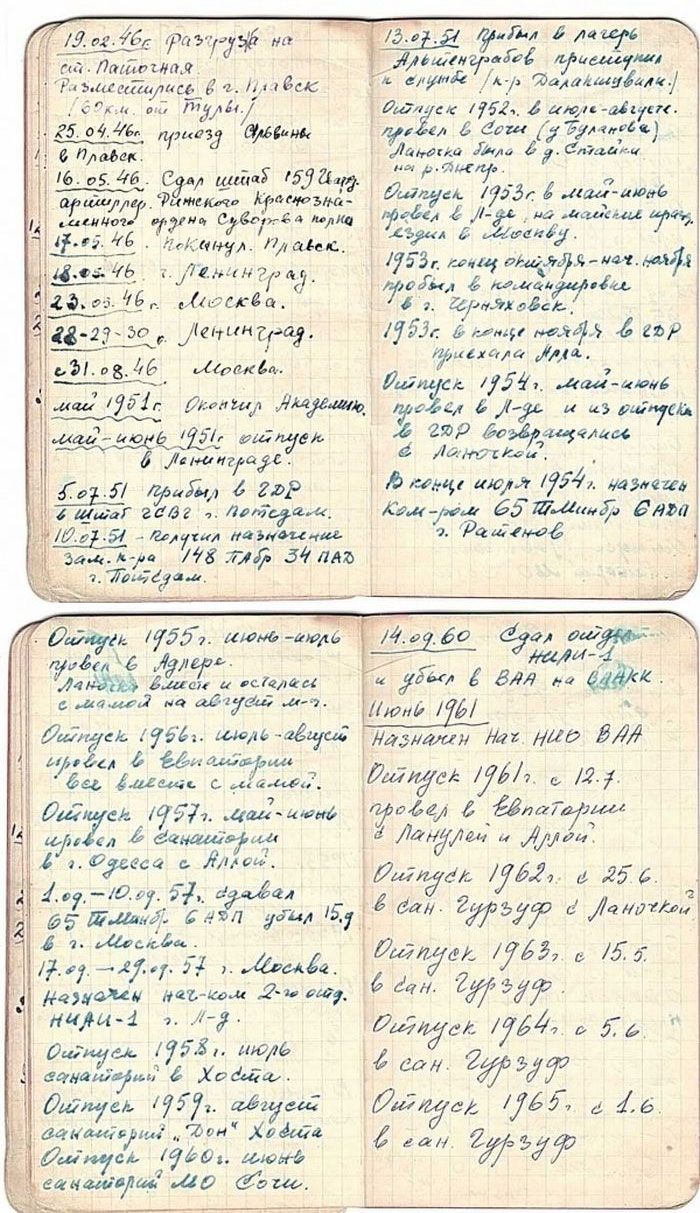 19.02.46г. Разгрузка на
ст. Паточная.
Разместились в г. Плавск
/60 км. от Тулы./
25.04.46г. приезд Альвины
в Плавск.
16.05.46. Сдал штаб 159 Гвард.
артиллер. Рижского Краснозна-
менного ордена Суворова полка
17.05.46. Покинул Плавск.
18.05.46 г. Ленинград.
23.05.46г. Москва.
28-29-30 г. Ленинград.
с 31.08.46 Москва.
май 1951г. Окончил Академию.
май-июнь 1951г отпуск
в Ленинграде.
5.07.51 прибыл в ГДР
в штаб ГСВГ г. Потсдам.
10.07.51 - получил назначение
зам. к-ра 148 ПАбр 34 ПАД
г. Потсдам.
13.07.51 прибыл в лагерь
Альтенграбов приступил
к службе /к-р Далакишвили./
Отпуск 1952г. в июле-августе.
провел в Сочи (у Буланова)
Ланочка была в д. Стайки
на р. Днепр.
Отпуск 1953г. в май-июнь
провел в Л-де, на майские празд.
ездил в Москву.
1953г. конец октября-нач. ноября
пробыл в командировке
в г. Черняховск.
1953г. в конце ноября в ГДР
приехала Алла.
Отпуск 1954г. май-июнь
провел в Л-де и из отпуска
в ГДР возвращались
с Ланочкой.
В конце июля 1954г. назначен
ком-ром 65 ТМинбр 6 АДП
г. Ратенов
Отпуск 1955г. июнь-июль
провел в Адлере.
Ланочка вместе и осталась
с мамой на август м-ц.
Отпуск 1956г. июль-август
провел в Евпатории
все вместе с мамой.
Отпуск 1957г. май-июнь
провел в санатории
в г. Одесса с Аллой.
1.09.-10.09.57г. сдавал
65 ТМинбр. 6 АДП убыл 15.9
в г. Москва.
17.09.-29.09.57 г. Москва.
назначен нач-ком 2-го отд.
НИАИ-1 г. Л-д.
Отпуск 1958г. июль
санаторий в Хоста.
Отпуск 1959г. август
санаторий „Дон" Хоста
Отпуск 1960г. июнь
санаторий МО Сочи.
14.09.60 Сдал отдел
НИАИ-1
и убыл в ВАА на ВАКК.
Июнь 1961
назначен нач. НИО ВАА
Отпуск 1961г. с 12.7.
провел в Евпатории
с Ланулей и Аллой.
Отпуск 1962г. с 25.6.
в сан. Гурзуф с Ланочкой
Отпуск 1963г. с 15.5.
в сан. Гурзуф.
Отпуск 1964г. с 5.6.
в сан. Гурзуф
Отпуск 1965г. с 1.6.
в сан. Гурзуф